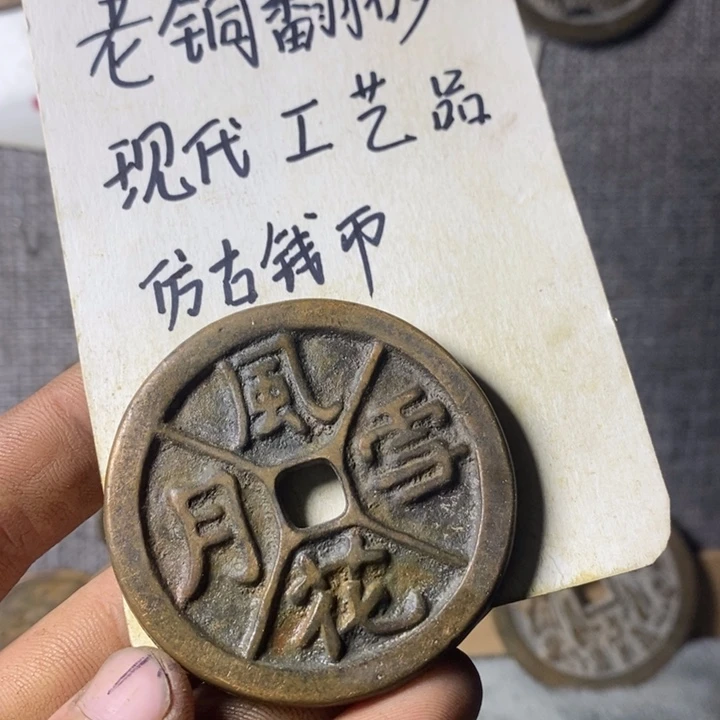 老铜翻砂
现代工艺品
仿古钱币
風花雪月